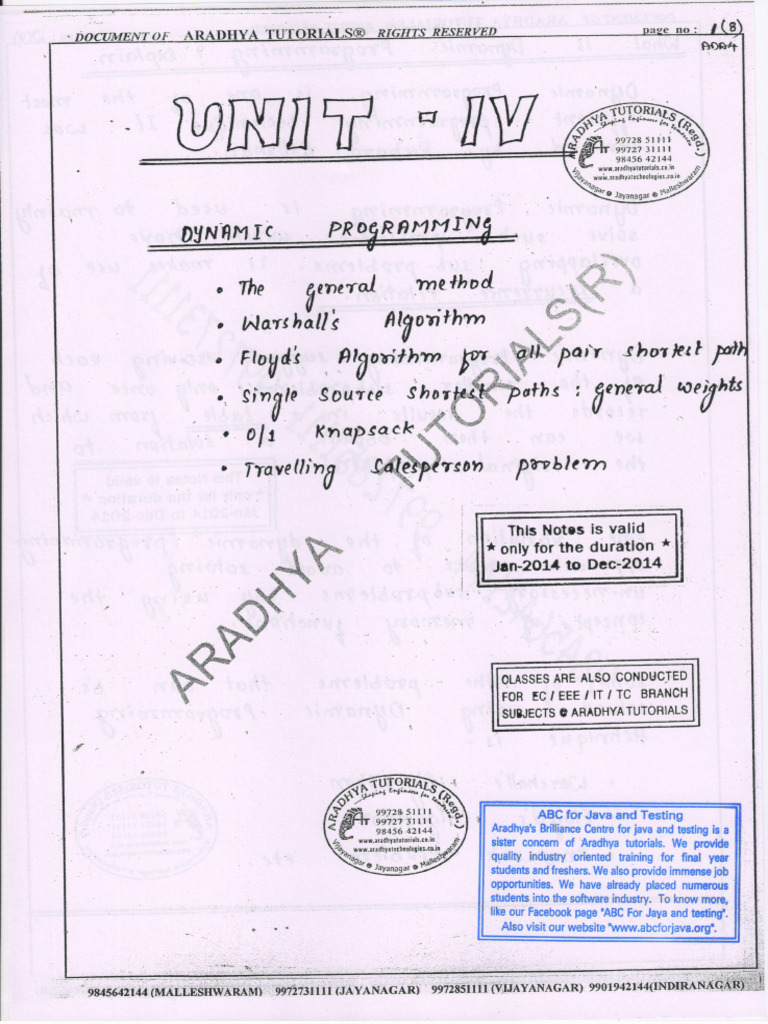 DOCUMENT OF ARADHYA TUTORIALS® RIGHTS RESERVED
page no : 1(8)
ADA4
UNIT - IV
ARADHYA TUTORIALS (Regd.)
...Shaping Engineers for
99728 51111
99727 31111
98456 42144
www.aradhyatutorials.co.in
www.aradhyatechnologies.co.in
Vijayanagar ● Jayanagar ● Malleshwaram
DYNAMIC PROGRAMMING
• The general method
• Warshall's Algorithm
• Floyd's Algorithm for all pair shortest path
• Single source shortest paths : general weights
• 0/1 Knapsack
• Travelling Salesperson problem
ARADHYA TUTORIALS(R)
This Notes is valid
★ only for the duration ★
Jan-2014 to Dec-2014
CLASSES ARE ALSO CONDUCTED
FOR EC / EEE / IT / TC BRANCH
SUBJECTS @ ARADHYATUTORIALS
ARADHYA TUTORIALS (Regd.)
...Shaping Engineers for
99728 51111
99727 31111
98456 42144
www.aradhyatutorials.co.in
www.aradhyatechnologies.co.in
Vijayanagar ● Jayanagar ● Malleshwaram
ABC for Java and Testing
Aradhya's Brilliance Centre for java and testing is a
sister concern of Aradhya tutorials. We provide
quality industry oriented training for final year
students and freshers. We also provide immense job
opportunities. We have already placed numerous
students into the software industry. To know more,
like our Facebook page "ABC For Jaya and testing".
Also visit our website "www.abcforjava.org".
9845642144 (MALLESHWARAM) 9972731111 (JAYANAGAR) 9972851111 (VIJAYANAGAR) 9901942144(INDIRANAGAR)